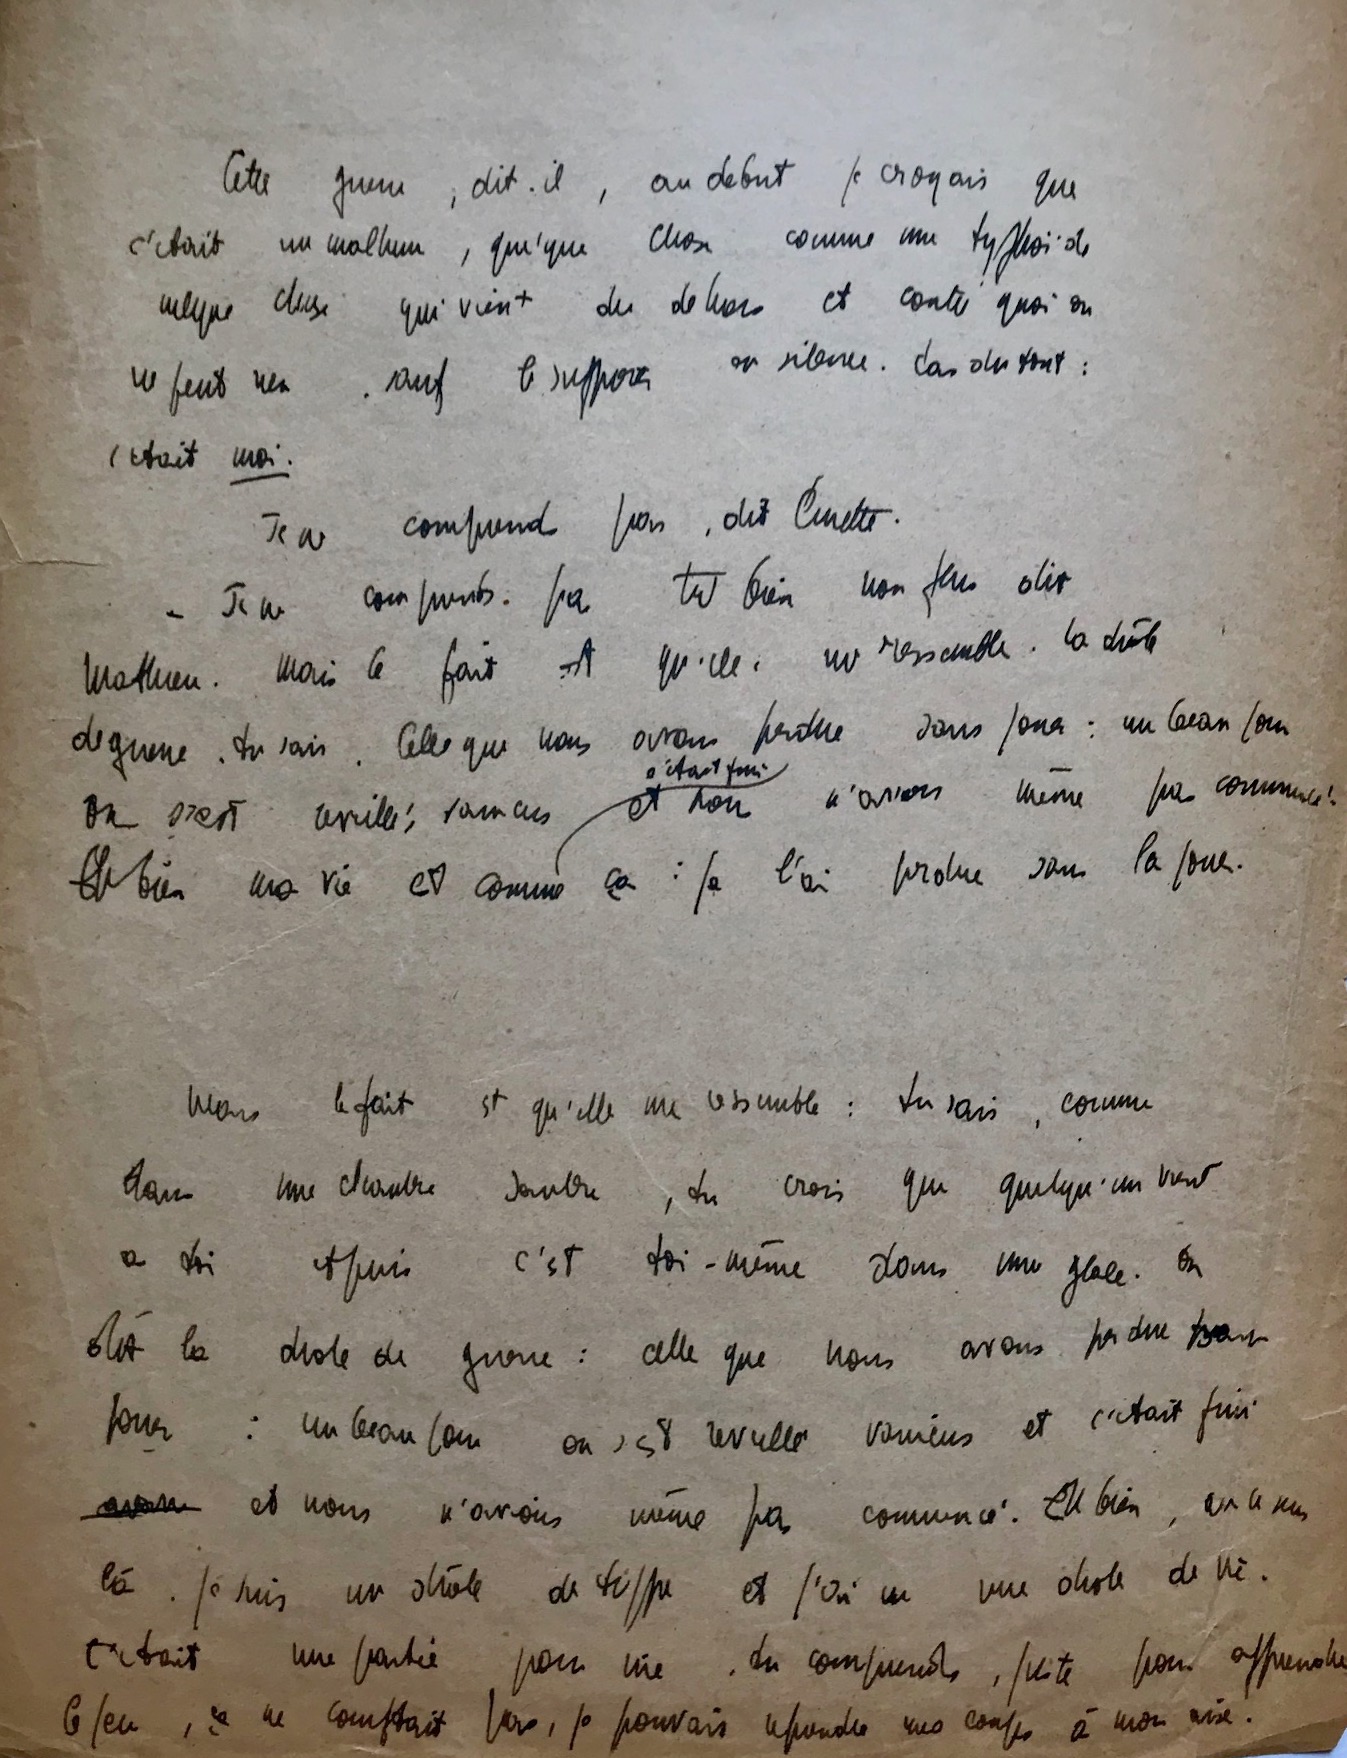 Cette guerre, dit-il, au debut je croyais que
c'était un malheur, quelque chose comme une typhoide
quelque chose qui vient du dehors et contre quoi on
ne peut rien, sauf le supporter en silence. Pas du tout :
c'était moi.
Je ne comprends pas, dit
- Je ne comprends pas très bien non plus dit
Mathieu. Mais le fait est qu'elle me ressemble. La drôle
de guerre, tu sais. Celle que nous avons perdue sans jouer : un beau jour
c'était fini
on s'est réveillés vaincus et nous n'avions même pas commencé.
Eh bien ma vie est comme ça : je l'ai perdue sans la jouer.
Mais le fait est qu'elle me ressemble : tu sais, comme
dans une chambre sombre, tu crois que quelqu'un vient
a toi et puis c'est toi-même dans une glace. On
dit la drole de guerre : celle que nous avons perdue sans
jouer : un beau jour on s'est reveillé vaincus et c'était fini
et nous n'avions même pas commencé. Eh bien, en ce sens
là, je suis un drôle de type et j'ai eu une drole de vie.
C'était une partie pour rire, tu comprends, juste pour apprendre
le jeu, ça ne comptait pas, je pouvais reprendre mes coups à mon aise.